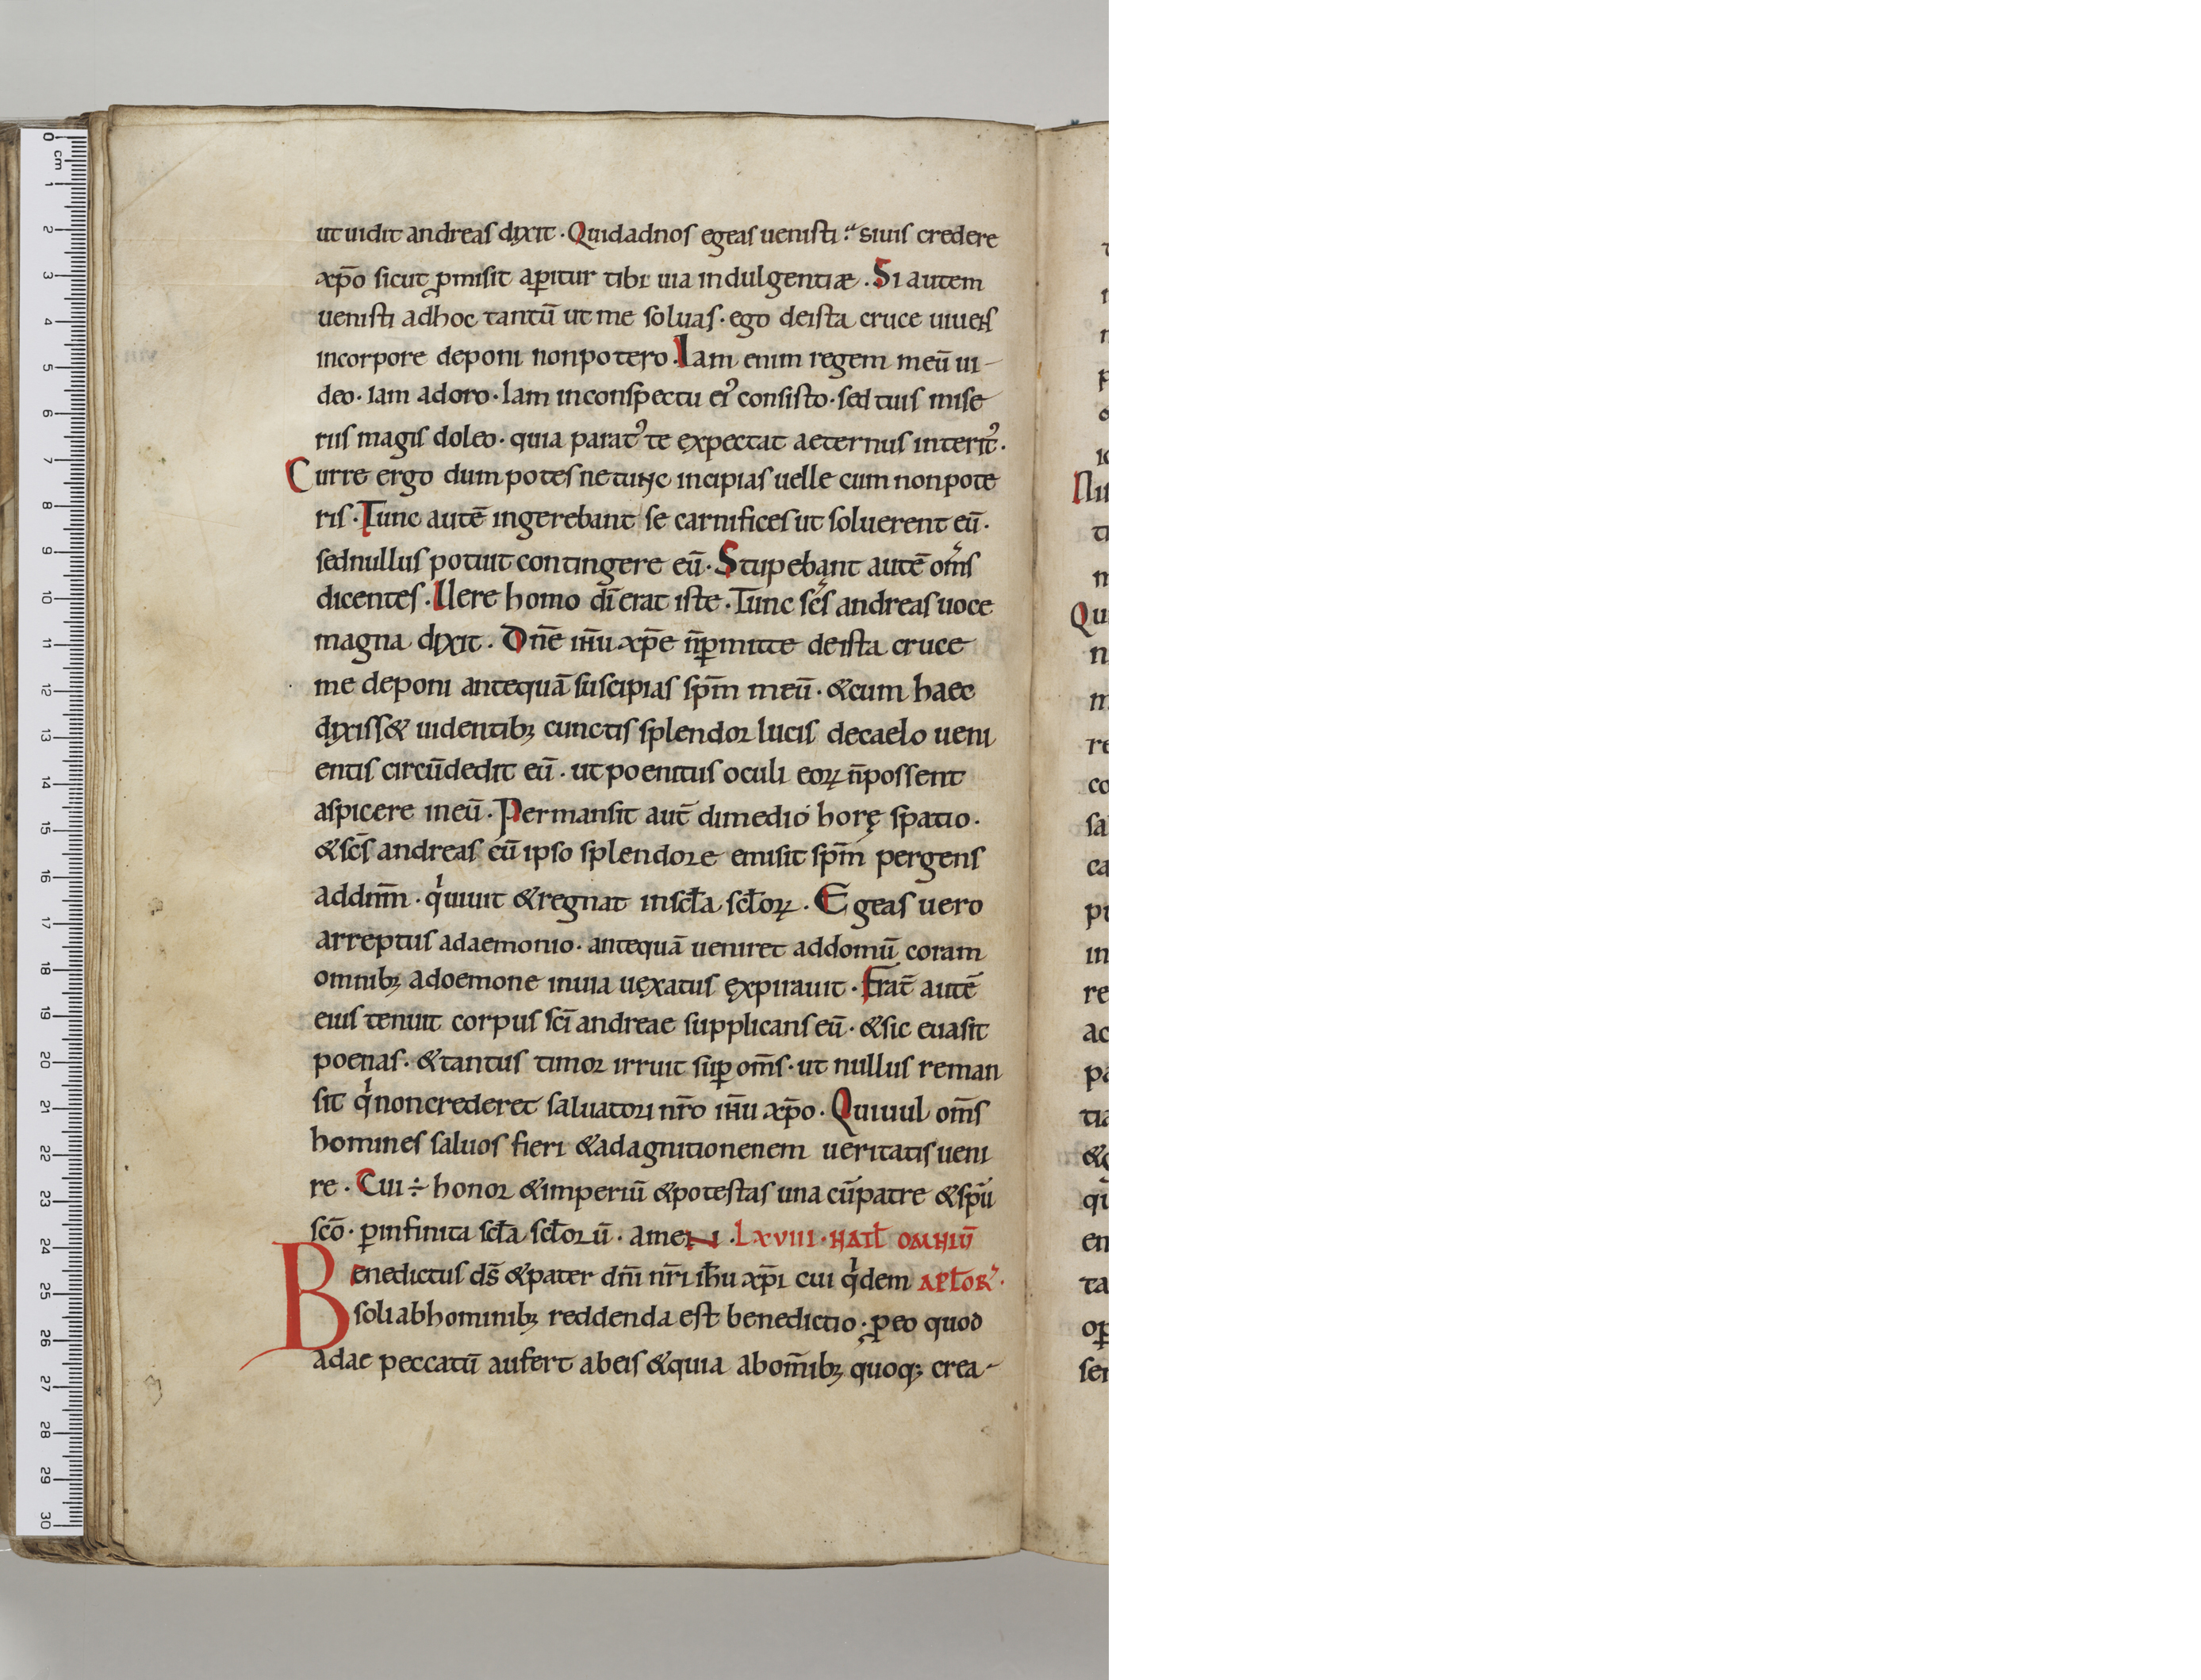 ut uidit andreas dixit · Quid ad nos egeas uenisti :· si uis credere
xp̄o sicut ꝓmisit aꝑitur tibi uia indulgentiæ . Si autem
uenisti ad hoc tantū ut me soluas · ego de ista cruce uiuens
in corpore deponi non potero . Iam enim regem meū ui-
deo · iam adoro · Iam in conspectu eiꝰ consisto · sed tuis mise
riis magis doleo · quia paratꝰ te expectat aeternus interitꝰ ·
Curre ergo dum potes ne tunc incipias uelle cum non pote
ris · Tunc autē ingerebant se carnifices ut soluerent eū ·
sed nullus potuit contingere eū · Stupebant autē om̄s
dicentes . Uere homo dī erat iste . Tunc sc̄s andreas uoce
magna dixit . Dn̄e ihū xp̄e n̄ ꝑmitte de ista cruce
me deponi antequā suscipias sp̄m meū · & cum haec
dixiss& uidentibꝫ cunctis splendor lucis de caelo ueni
entis circūdedit eū · ut poenitus oculi eoꝝ n̄ possent
aspicere in eū . Permansit aut̄ dimedio horę spatio .
& sc̄s andreas cū ipso splendore emisit sp̄m pergens
ad dnm̄ . qͥ uiuit & regnat in scl̄a scl̄oꝝ . Egeas uero
arreptus a daemonio · antequā ueniret ad domū coram
omnibꝫ a doemone in uia uęxatus ęxpirauit . Frat̄ autē
eius tenuit corpus scī andreae supplicans eū · & sic euasit
poenas · & tantus timor irruit suꝑ om̄s · ut nullus reman
sit qͥ non crederet saluatori nr̄o ihū xp̄o . Qui uul om̄s
homines saluos fieri & ad agnitionenem ueritatis ueni
re . Cui ÷ honor & imperiū & potestas una cū patre & sp̄u
scō · ꝑ infinita scl̄a scl̄orū . amen . LXVIII · NATL̄ OMNIŪ
Benedictus ds̄ & pater dn̄i nr̄i ihū xp̄i cui qͥdem APL̄OR̄ .
soli ab hominibꝫ reddenda est benedictio · ꝓ eo quod
adae peccatū aufert ab eis & quia ab om̄ibꝫ quoqꝫ crea-